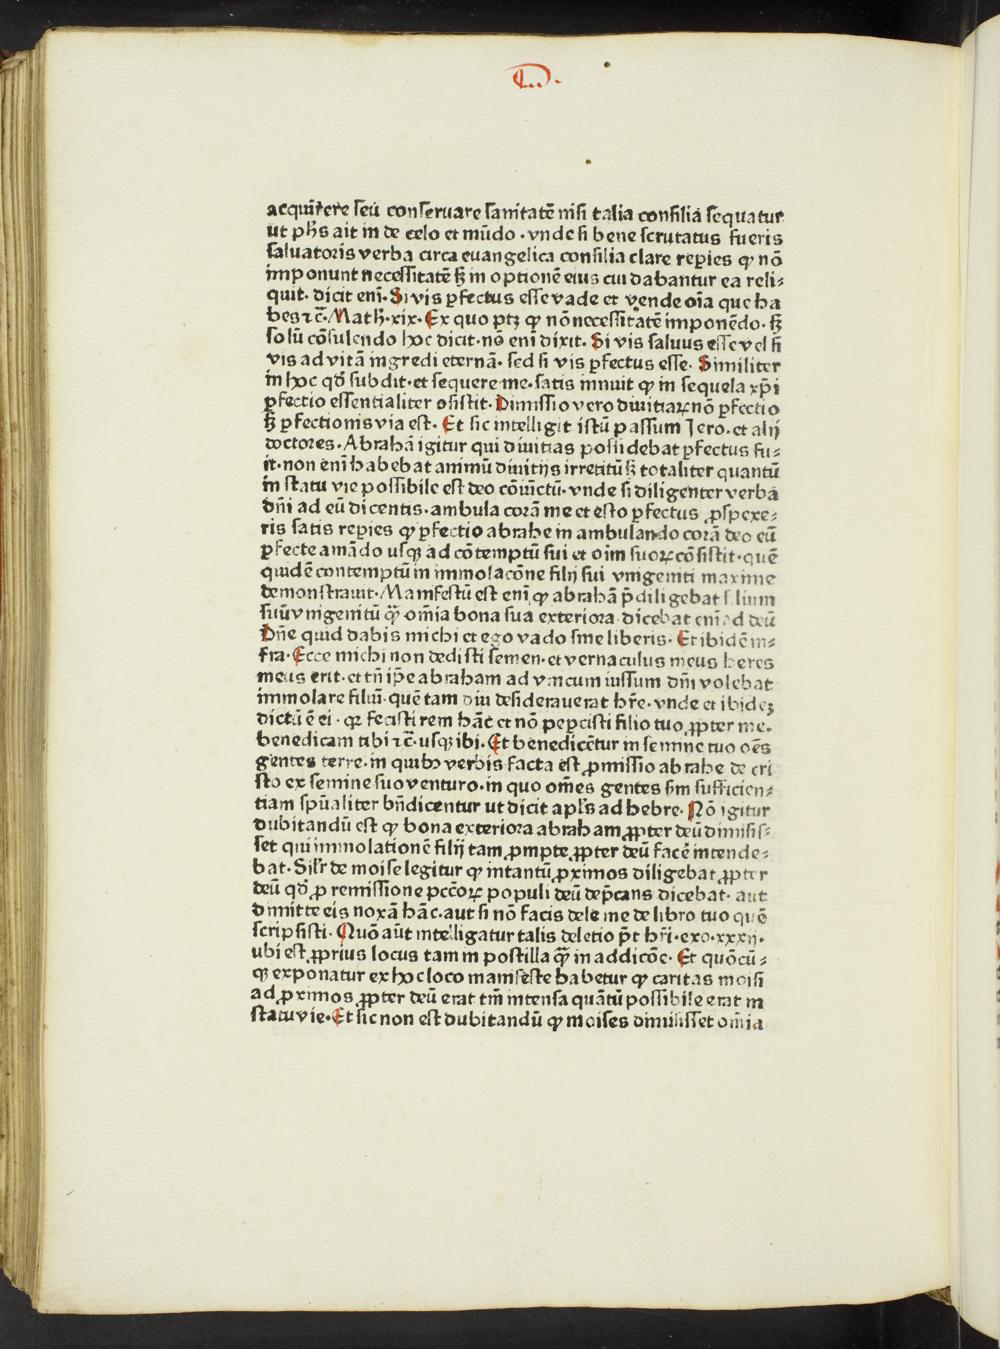 acquirere seu conseruare sanitatē nisi talia consilia sequatur
ut ph̄s ait in de celo et mūdo · vnde si bene scrutatus fueris
saluatoris verba circa euangelica consilia clare repies ꝙ nō
imponunt necessitatē sꝫ in optionē eius cui dabantur ea reli⸗
quit. dicit enī. Si vis ꝑfectus esse vade et vende oīa que ha
bes ⁊c̄. Math̄.xix. Ex quo ptꝫ ꝙ nō necessitatē imponēdo. sꝫ
solū cōsulendo hoc dicit. nō enī dixit. Si vis saluus esse vel si
vis ad vitā ingredi eternā. sed si vis ꝑfectus esse. Similiter
in hoc qd̄ subdit. et sequere me. satis innuit ꝙ in sequela xp̄i
ꝑfectio essentialiter ↄsistit. Dimissio vero diuitiaꝝ nō ꝑfectio
sꝫ ꝑfectionis via est. Et sic intelligit istū passum Jero. et alij
doctores. Abrahā igitur qui diuitias possidebat ꝑfectus fu⸗
it. non enī habebat animū diuitijs irretitū sꝫ totaliter quantū
in statu vie possibile est deo cōiūctū. vnde si diligenter verba
dn̄i ad eū dicentis. ambula corā me et esto ꝑfectus ꝓspexe⸗
ris satis repies ꝙ ꝑfectio abrahe in ambulando corā deo eū
ꝑfecte amādo usqꝫ ad cōtemptū sui et oīm suoꝝ cōsistit. quē
quidē contemptū in immolacōne filij sui vnigeniti maxime
demonstrauit. Manifestū est enī ꝙ abrahā p̄diligebat filium
suū vnigenitū qꝫ̄ om̄ia bona sua exteriora. dicebat enī ad deū
Dn̄e quid dabis michi et ego vado sine liberis. Et ibidē in⸗
fra. Ecce michi non dedisti semen. et vernaculus meus heres
meus erit. et tn̄ ip̄e abraham ad vnicum iussum dn̄i volebat
immolare filiū. quē tam diu desiderauerat hr̄e. vnde et ibidēꝫ
dictū ē ei. qꝛ fecisti rem hāc et nō pepcisti filio tuo ꝓpter me.
benedicam tibi ⁊c̄. usqꝫ ibi. Et benedicētur in semine tuo oēs
gentes terre. in quibꝫ verbis facta est ꝓmissio abrahe de cri
sto ex semine suo venturo. in quo om̄es gentes sm̄ sufficien⸗
tiam spūaliter bn̄dicentur ut dicit apl̄s ad hebre. Nō igitur
dubitandū est ꝙ bona exteriora abraham ꝓpter deū dimisis⸗
set qui immolationē filij tam ꝓmpte ꝓpter deū facē intende⸗
bat. Silr̄ de moise legitur ꝙ intantū ꝓximos diligebat ꝓpter
deū qd̄ ꝓ remissione pc̄coꝝ populi deū dep̄cans dicebat. aut
dimitte eis noxā hāc. aut si nō facis dele me de libro tuo quē
scripsisti. Quō aūt intelligatur talis deletio p̄t hr̄i. exo.xxxij.
ubi est ꝓprius locus tam in postilla qꝫ̄ in addicōe. Et quōcū⸗
qꝫ exponatur ex hoc loco manifeste habetur ꝙ caritas moisi
ad ꝓximos ꝓpter deū erat tm̄ intensa quātū possibile erat in
statu vie. Et sic non est dubitandū ꝙ moises dimisisset om̄ia